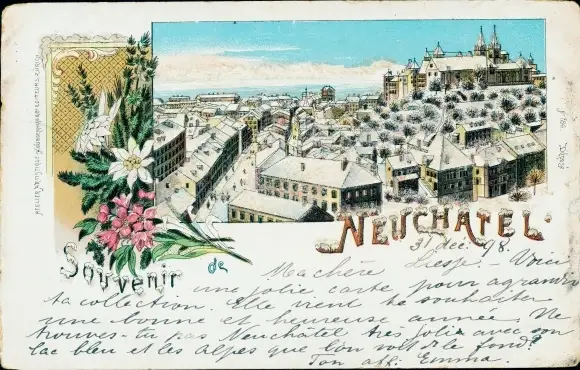 NEUCHATEL.
Souvenir de
31 déc. 98.
Ma chère Liesje. – Voici
une jolie carte pour agrandir
ta collection. Elle vient te souhaiter
une bonne et heureuse année. Ne
trouves-tu pas Neuchâtel très jolie avec son
lac bleu et les Alpes que l'on voit ds le fond?
Ton aff. Emma.